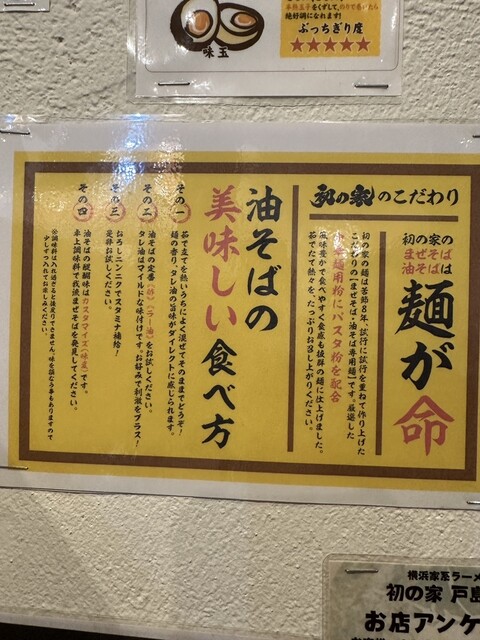 半熟玉子をくずして、のりで巻いたら
絶好調になれます!
ぶっちぎり度
★★★★★
味玉
初の家のこだわり
初の家の
まぜそば
油そばは
麺が命
初の家の麺は苦節8年、試行に試行を重ねて作り上げた
こだわりの「まぜそば・油そば専用麺」です。厳選した
麺用粉にパスタ粉を配合
風味豊かで食べやすく食感も抜群の麺に仕上げました。
茹でたて熱々を、たっぷりお召し上がりください。
油そばの
美味しい食べ方
その一
茹で立てを熱いうちによく混ぜてそのままでどうぞ!
麺の香り、タレ油の旨味がダイレクトに感じられます。
その二
油そばの定番《酢》《ラー油》をお試しください。
タレ油はマイルドな味付けです。お好みで刺激をプラス!
その三
おろしニンニクでスタミナ補給!
是非お試しください。
その四
油そばの醍醐味はカスタマイズ(味変)です。
卓上調味料で我流まぜそばを発見してください。
※調味料は入れ過ぎると後戻りできません。味を損なう事もありますので
少しずつ入れてお楽しみください。
横浜家系ラーメ
初の家 戸
お店アンケ